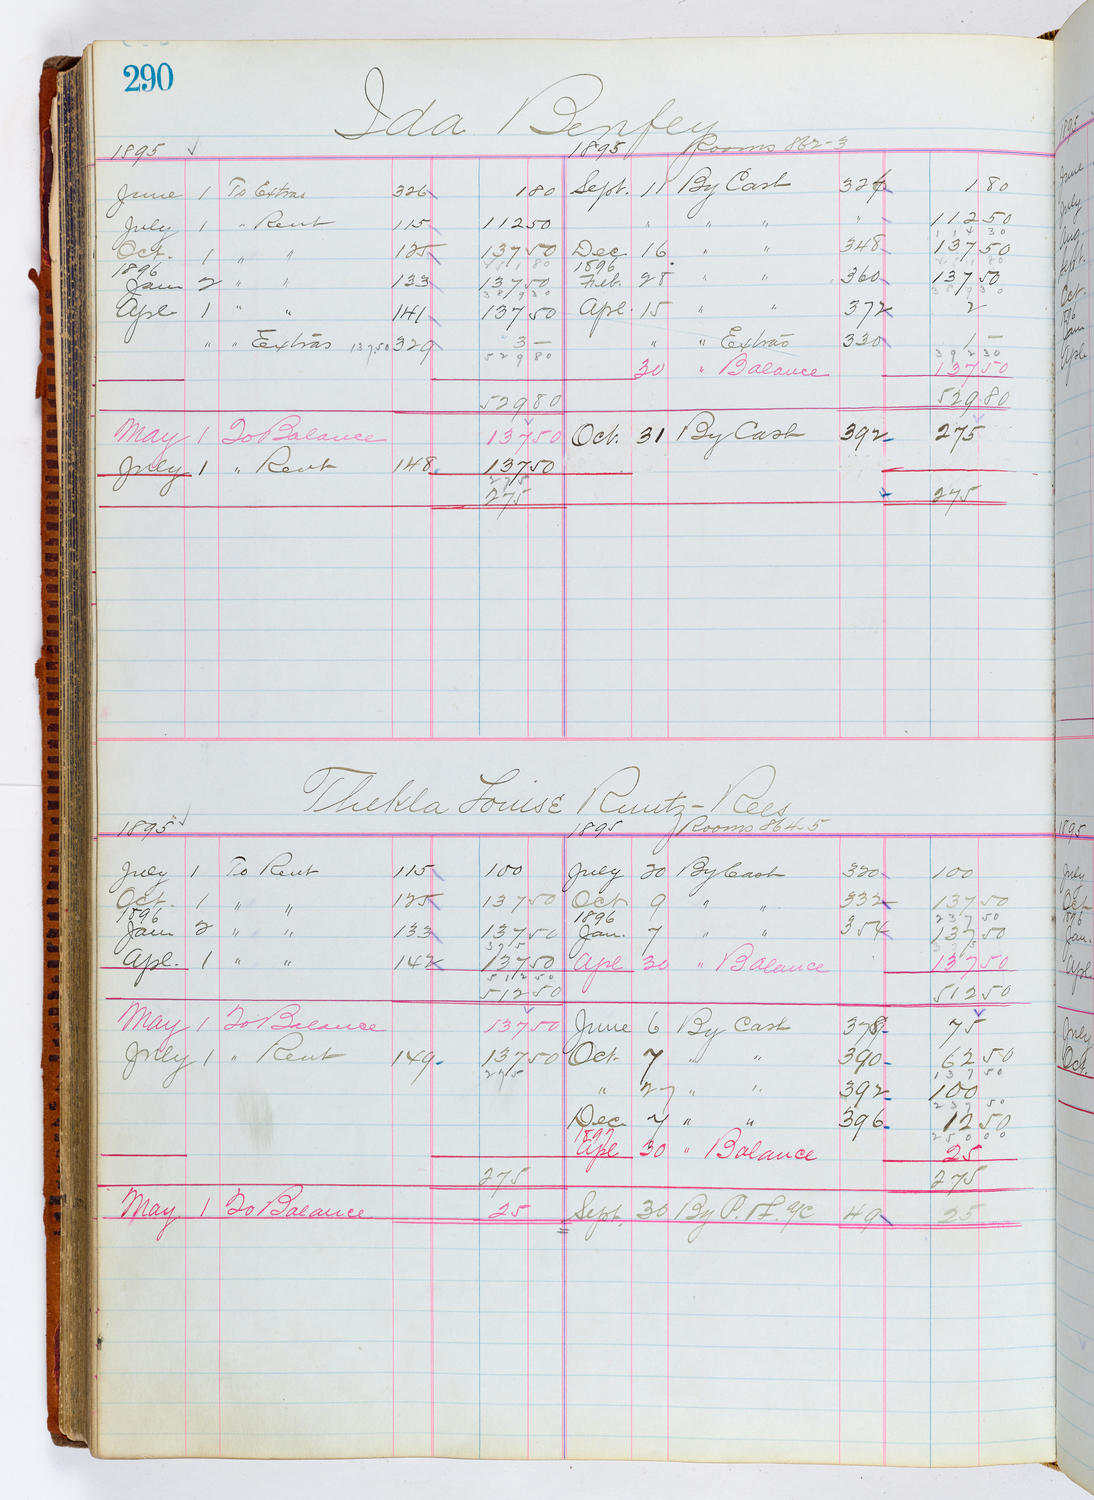 290
Ida Benfey
1895 1895 Rooms 862-3
June 1 To Extras 326 1 80 Sept. 11 By Cash 324 1 80
July 1 " Rent 115 112 50 " " " " 112 50
114 30
Oct. 1 " " 125 137 50 Dec 16 " " 348 137 50
251 80 251 80
1896 1896
Jan 2 " " 133 137 50 Feb. 28 " " 360 137 50
389 30 389 30
Apl. 1 " " 141 137 50 Apl. 15 " " 372 2
" " Extras 137.50 329 3 — " " Extras 330 1 —
529 80 392 30
30 " Balance 137 50
529 80 529 80
May 1 To Balance 137 50 Oct. 31 By Cash 392 275
July 1 " Rent 148 137 50
275
275 275
Thekla Louise Runtz-Rees
1895 1895 Rooms 864-5
July 1 To Rent 115 100 July 30 By Cash 320 100
Oct. 1 " " 125 137 50 Oct 9 " " 332 137 50
237 50
1896 1896
Jan 2 " " 133 137 50 Jan. 7 " " 354 137 50
375 375
Apl. 1 " " 142 137 50 Apl 30 " Balance 137 50
512 50
512 50 512 50
May 1 To Balance 137 50 June 6 By Cash 378 75
July 1 " Rent 149 137 50 Oct. 7 " " 390 62 50
275 137 50
" 27 " " 392 100
237 50
Dec 7 " " 396 12 50
250 00
1897
Apl 30 " Balance 25
275 275
May 1 To Balance 25 Sept. 30 By P. & L. a/c 49 25
1895
June
July
Aug.
Sept.
Oct.
1896
Jan.
Apl.
1895
July
Oct
1896
Jan.
Apl
July
Oct.